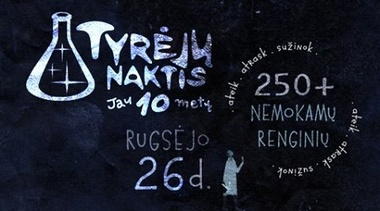 TYRĖJŲ
NAKTIS
Jau 10 metų
RUGSĖJO
26d.
ateik · atrask · sužinok ·
250+
NEMOKAMŲ
RENGINIŲ
ateik · atrask · sužinok ·